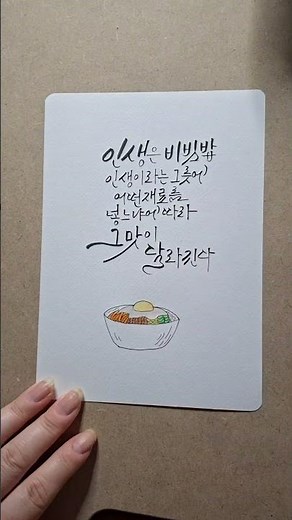 인생은 비빔밥
인생이라는 그릇에
어떤 재료를
넣느냐에 따라
그 맛이
달라진다